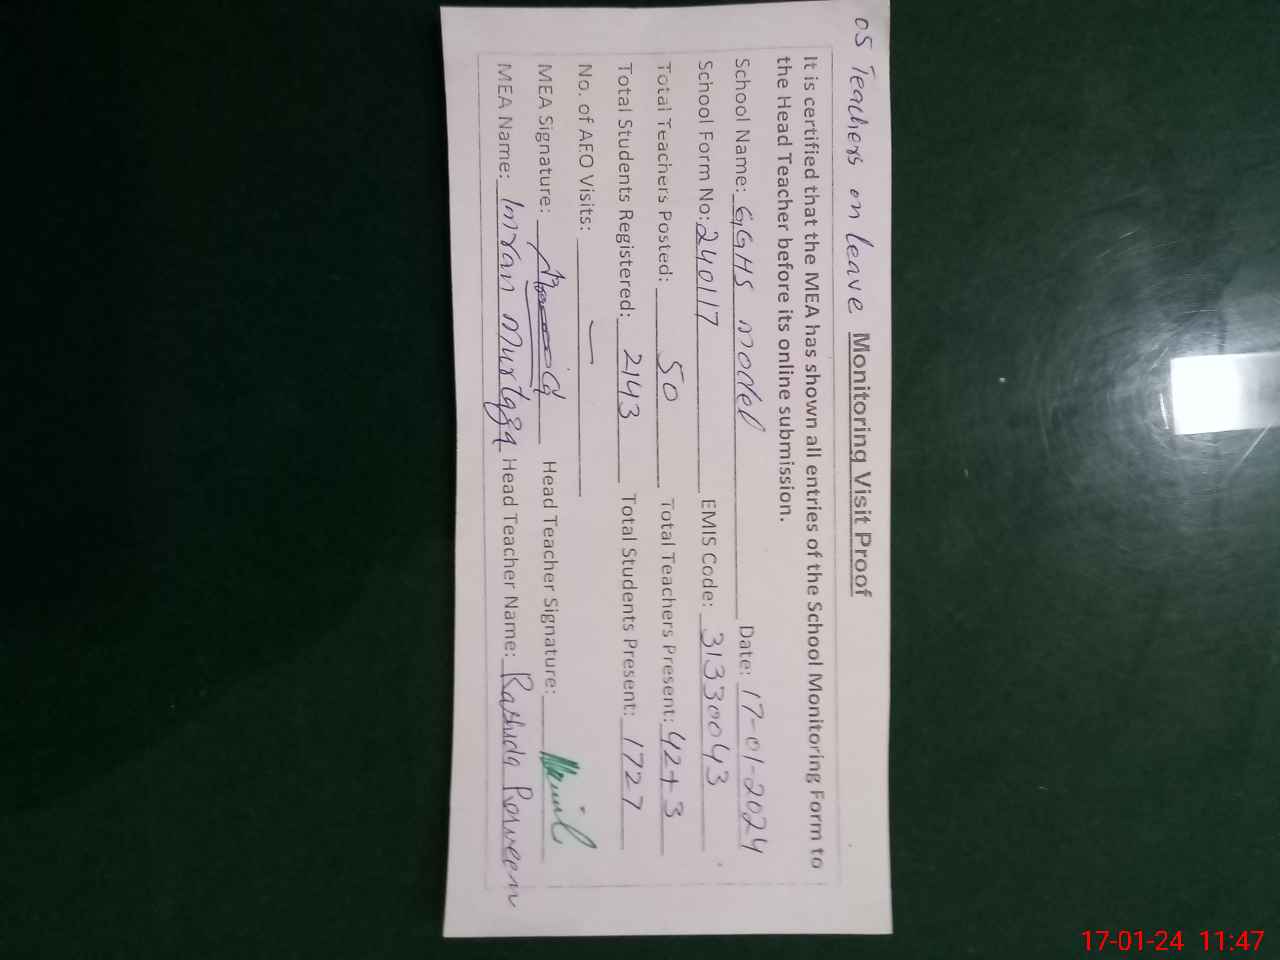 05 Teachers on leave Monitoring Visit Proof
It is certified that the MEA has shown all entries of the School Monitoring Form to
the Head Teacher before its online submission.
School Name: GGHS model Date: 17-01-2024
School Form No: 240117 EMIS Code: 31330043
Total Teachers Posted: 50 Total Teachers Present: 42+3
Total Students Registered: 2143 Total Students Present: 1727
No. of AEO Visits: —
MEA Signature: Head Teacher Signature:
MEA Name: Imran Murtaza Head Teacher Name: Rashida Perveen
17-01-24 11:47